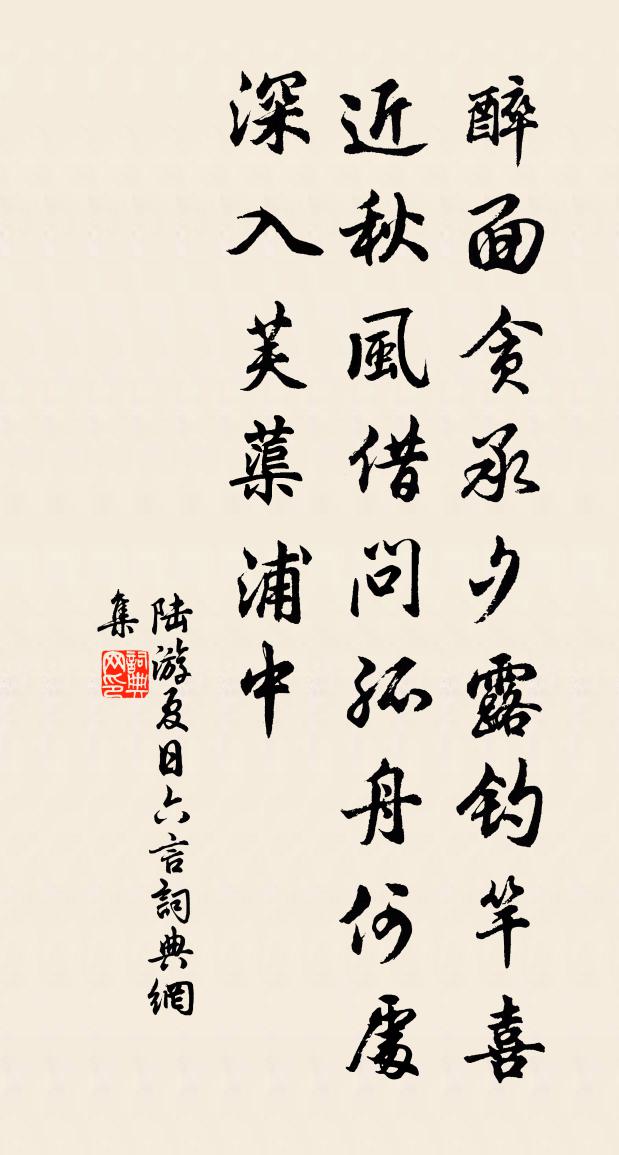 醉面貪承夕露釣竿喜
近秋風借問孤舟何處
深入芙蕖浦中
陆游夏日六言詞典網
集
詞典
网印